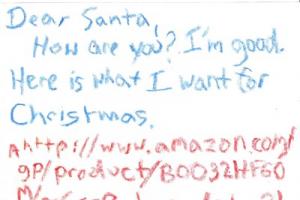 Dear Santa,
How are you? I'm good.
Here is what I want for
Christmas.
A http://www.amazon.com/
gp/product/B0032HF60